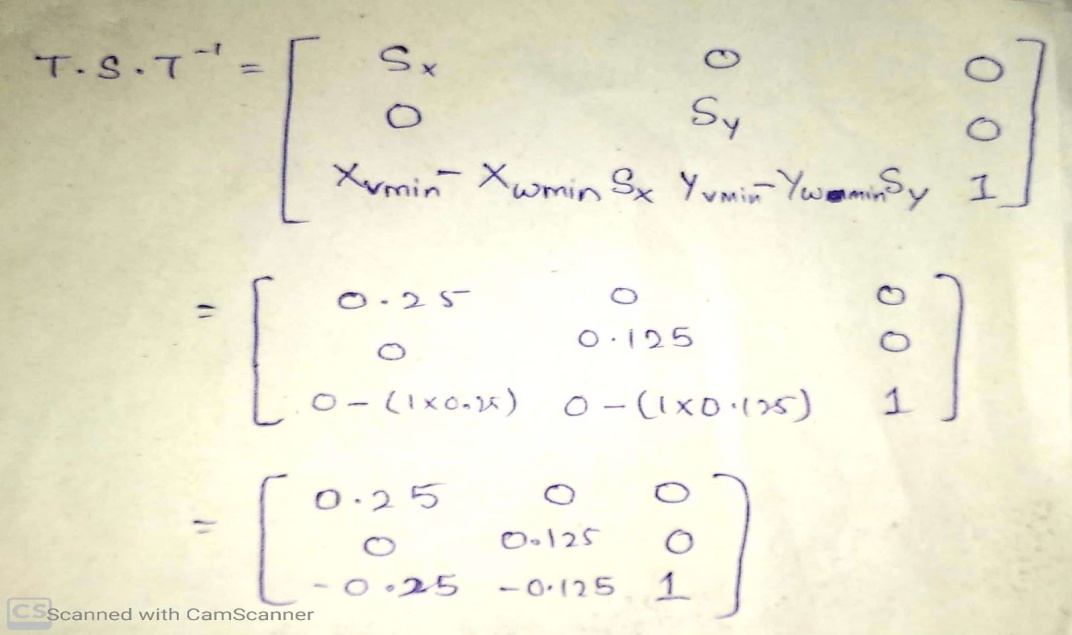 T.S.T⁻¹ = [ Sx 0 0
0 Sy 0
Xvmin - Xwmin Sx Yvmin - Ywmin Sy 1 ]
= [ 0.25 0 0
0 0.125 0
0 - (1x0.25) 0 - (1x0.125) 1 ]
= [ 0.25 0 0
0 0.125 0
-0.25 -0.125 1 ]
CS Scanned with CamScanner